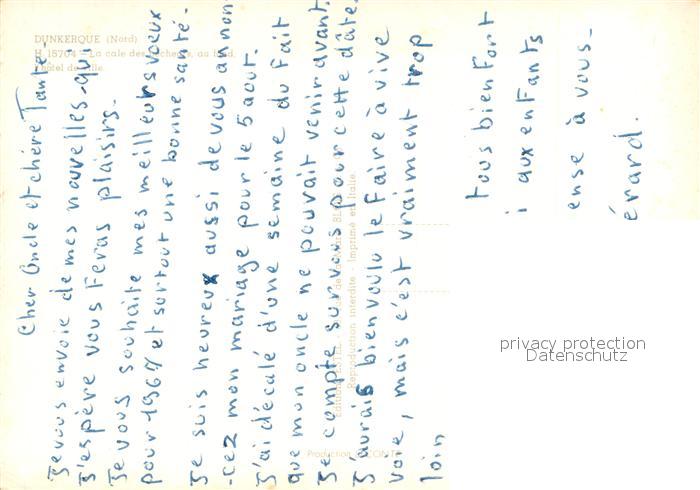 DUNKERQUE (Nord)
H 15704 - La cale des pêcheurs, au fond,
l'hôtel de ville.
Cher Oncle et chère Tante.
Je vous envoie de mes nouvelles qui
j'espère vous feras plaisirs.
Je vous souhaite mes meilleurs voeux
pour 1967 et surtout une bonne santé.
Je suis heureux aussi de vous annon
-cez mon mariage pour le 5 aout.
J'ai décalé d'une semaine du fait
que mon oncle ne pouvait venir avant.
Je compte sur vous pour cette dâte.
J'aurais bien voulu le faire à vive
voie, mais c'est vraiment trop
loin
tous bien fort
i aux enfants
ense à vous.
érard.
Reproduction interdite - Imprimé en Italie
Production
privacy protection
Datenschutz